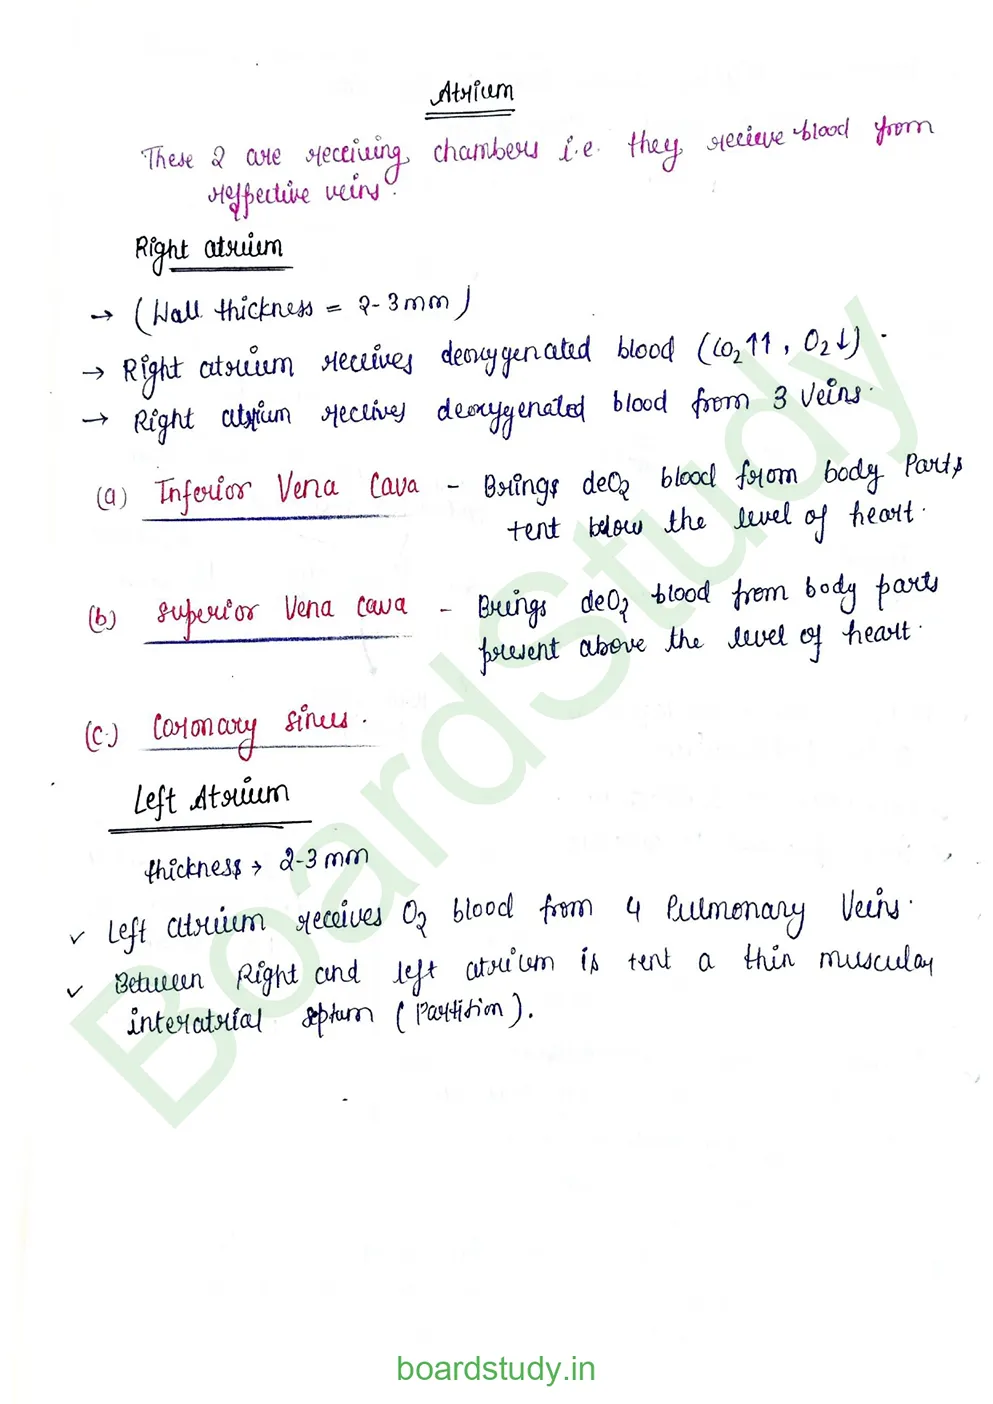 Atrium
These 2 are receiving chambers i.e. they recieve blood from
respective veins.
Right atrium
→ (Wall thickness = 2-3mm)
→ Right atrium receives deoxygenated blood (CO2↑↑, O2↓).
→ Right atrium receives deoxygenated blood from 3 veins.
(a) Inferior Vena Cava - Brings deO2 blood from body Parts
tent below the level of heart.
(b) Superior Vena Cava - Brings deO2 blood from body parts
present above the level of heart.
(c.) Coronary sinus.
Left Atrium
thickness → 2-3mm
✓ Left atrium receives O2 blood from 4 Pulmonary Veins.
✓ Between Right and left atrium is tent a thin muscular
interatrial septum (Partition).
BoardStudy
boardstudy.in